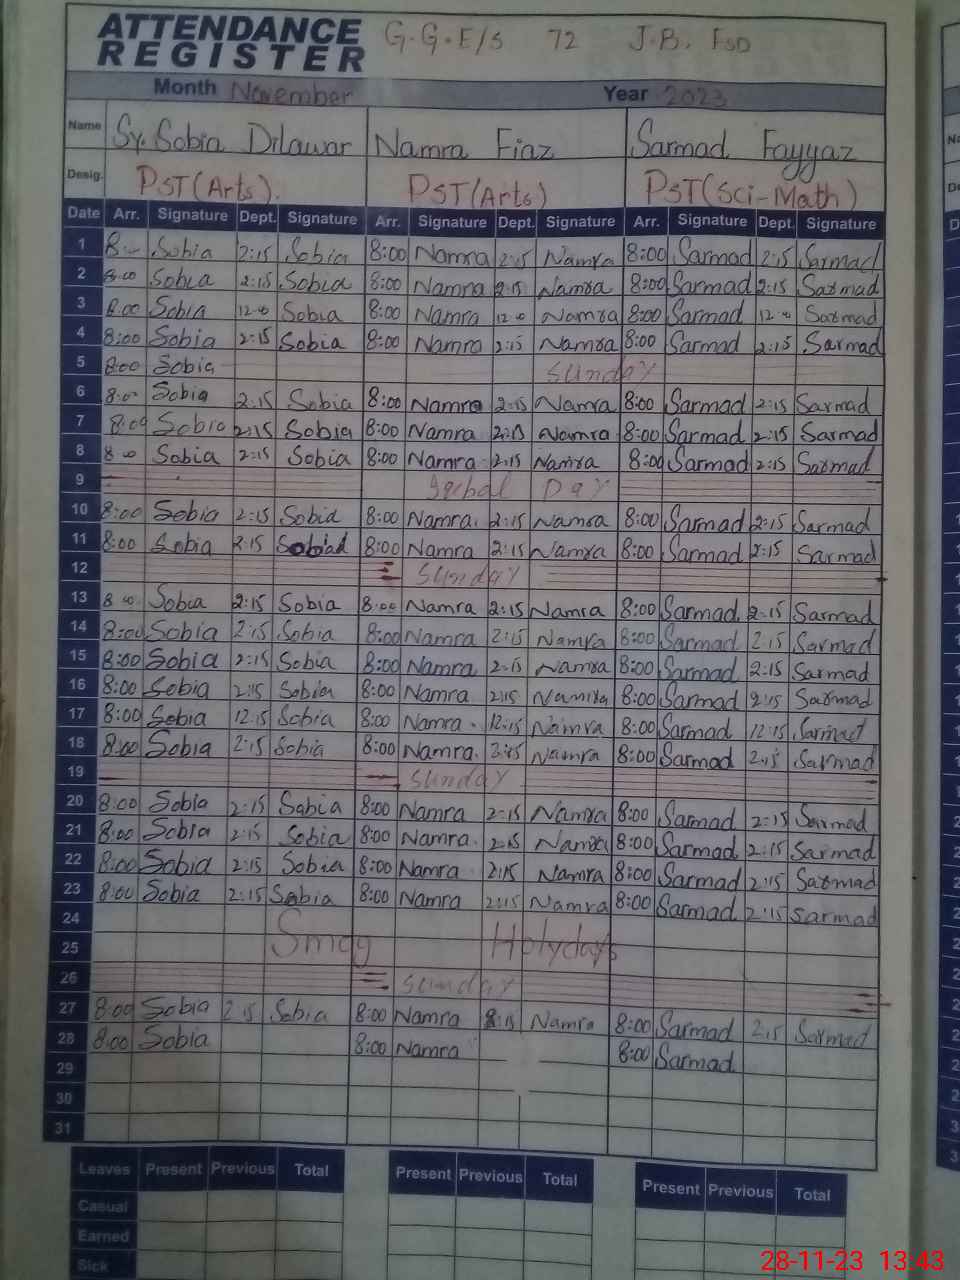 ATTENDANCE REGISTER G.G.E/S 72 J.B. FSD
Month November Year 2023
Name Sy. Sobia Dilawar Namra Fiaz Sarmad Fayyaz
Desig. PST(Arts). PST(Arts) PST(Sci-Math)
Date Arr. Signature Dept. Signature Arr. Signature Dept. Signature Arr. Signature Dept. Signature
1 8:00 Sobia 2:15 Sobia 8:00 Namra 2:15 Namra 8:00 Sarmad 2:15 Sarmad
2 8:00 Sobia 2:15 Sobia 8:00 Namra 2:15 Namra 8:00 Sarmad 2:15 Sarmad
3 8:00 Sobia 12:00 Sobia 8:00 Namra 12:00 Namra 8:00 Sarmad 12:00 Sarmad
4 8:00 Sobia 2:15 Sobia 8:00 Namra 2:15 Namra 8:00 Sarmad 2:15 Sarmad
5 8:00 Sobia Sunday
6 8:00 Sobia 2:15 Sobia 8:00 Namra 2:15 Namra 8:00 Sarmad 2:15 Sarmad
7 8:00 Sobia 2:15 Sobia 8:00 Namra 2:15 Namra 8:00 Sarmad 2:15 Sarmad
8 8:00 Sobia 2:15 Sobia 8:00 Namra 2:15 Namra 8:00 Sarmad 2:15 Sarmad
9 Day
10 8:00 Sobia 2:15 Sobia 8:00 Namra. 2:15 Namra 8:00 Sarmad 2:15 Sarmad
11 8:00 Sobia 2:15 Sobia 8:00 Namra 2:15 Namra 8:00 Sarmad 2:15 Sarmad
12 Sunday
13 8:00 Sobia 2:15 Sobia 8:00 Namra 2:15 Namra 8:00 Sarmad 2:15 Sarmad
14 8:00 Sobia 2:15 Sobia 8:00 Namra 2:15 Namra 8:00 Sarmad 2:15 Sarmad
15 8:00 Sobia 2:15 Sobia 8:00 Namra 2:15 Namra 8:00 Sarmad 2:15 Sarmad
16 8:00 Sobia 2:15 Sobia 8:00 Namra 2:15 Namra 8:00 Sarmad 2:15 Sarmad
17 8:00 Sobia 12:15 Sobia 8:00 Namra. 12:15 Namra 8:00 Sarmad 12:15 Sarmad
18 8:00 Sobia 2:15 Sobia 8:00 Namra. 2:15 Namra 8:00 Sarmad 2:15 Sarmad
19 Sunday
20 8:00 Sobia 2:15 Sobia 8:00 Namra 2:15 Namra 8:00 Sarmad 2:15 Sarmad
21 8:00 Sobia 2:15 Sobia 8:00 Namra. 2:15 Namra 8:00 Sarmad 2:15 Sarmad
22 8:00 Sobia 2:15 Sobia 8:00 Namra 2:15 Namra 8:00 Sarmad 2:15 Sarmad
23 8:00 Sobia 2:15 Sobia 8:00 Namra 2:15 Namra 8:00 Sarmad 2:15 Sarmad
24
25 Smog Holydays
26 Sunday
27 8:00 Sobia 2:15 Sobia 8:00 Namra 2:15 Namra 8:00 Sarmad 2:15 Sarmad
28 8:00 Sobia 8:00 Namra 8:00 Sarmad
29
30
31
Leaves Present Previous Total Present Previous Total Present Previous Total
Casual
Earned
Sick
28-11-23 13:43